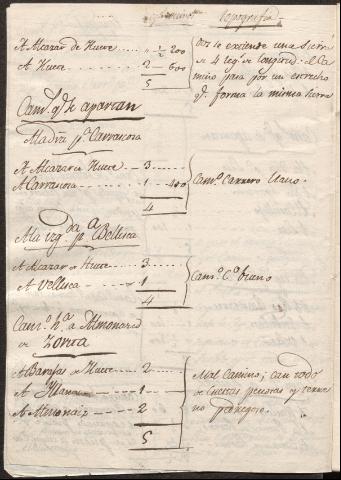 topografia
A Alcazar de Huete ½ 200
A Huete 2 600
5
Dos se extiende una Sierra
de 4 leg.s de longitud: el Ca
mino pasa por un estrecho
q.e forma la misma sierra
Cam.s q.e se apartan
A la dra p.a Carrascosa
A Alcazar de Huete 3
A Carrascosa 1 400
4
Cam.o Carretero llano.
A la izq.da p.a Bellisca
A Alcazar de Huete 3
A Vellisca 1
4
Cam.o C.o bueno
Cam.o h.a Almonacid
de Zorita
A Barajas de Huete 2
A Illana 1
A Almonaz 2
5
Mal Camino; casi todo
de Cuestas penosas y terre
no pedregoso.